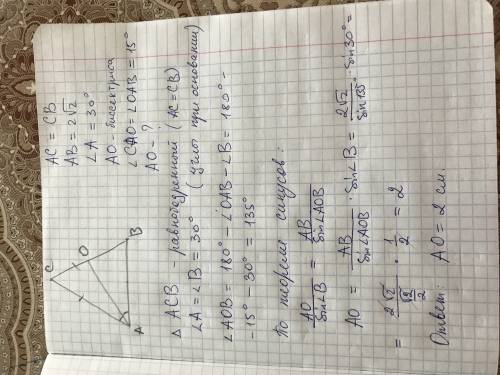 AC = CB
AB = 2√2
∠A = 30°
AO - биссектриса
∠CAO = ∠OAB = 15°
AO - ?
C
O
A
B
Δ ACB - равнобедренный (AC = CB)
∠A = ∠B = 30° (углы при основании)
∠AOB = 180° - ∠OAB - ∠B = 180° -
- 15° - 30° = 135°
По теореме синусов:
AO/sin∠B = AB/sin∠AOB
AO = AB/sin∠AOB · sin∠B = 2√2/sin135° · sin30° =
= 2√2/(√2/2) · 1/2 = 2
Ответ: AO = 2 см.